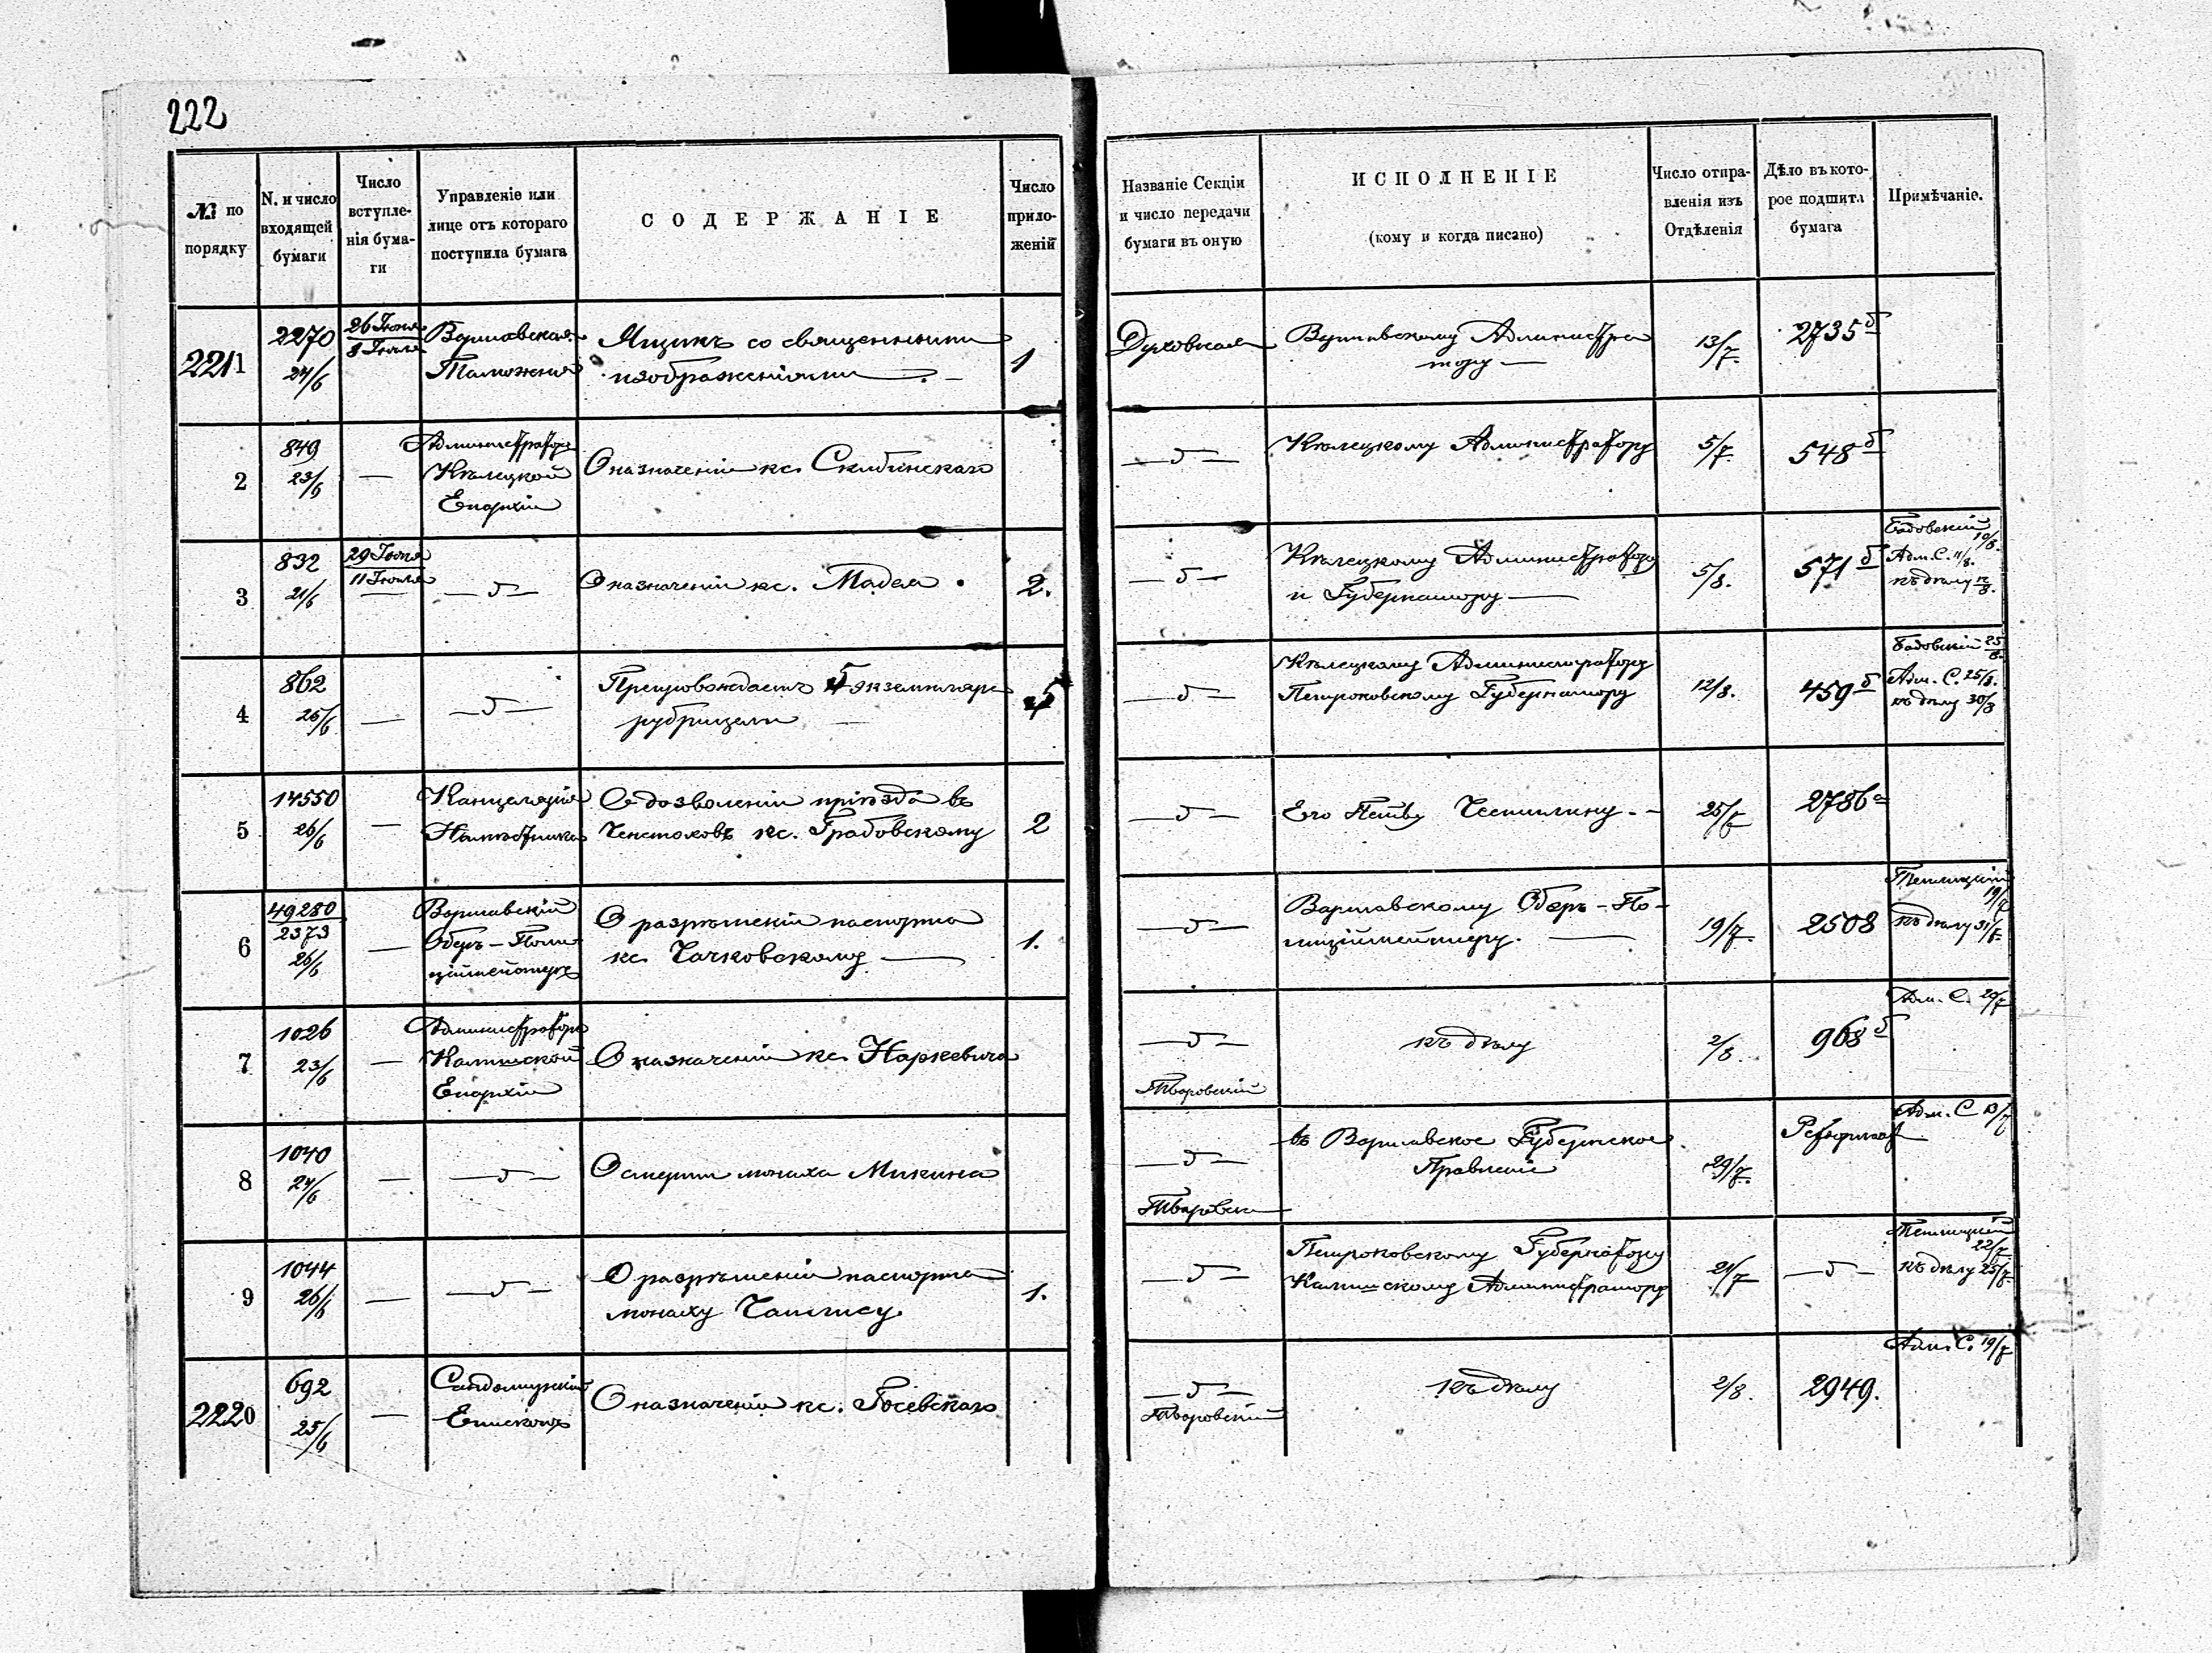 222
№ по порядку
N. и число входящей бумаги
Число вступленія бумаги
Управленіе или лице отъ котораго поступила бумага
СОДЕРЖАНІЕ
Число приложеній
Названіе Секціи и число передачи бумаги въ оную
ИСПОЛНЕНІЕ
(кому и когда писано)
Число отправленія изъ Отдѣленія
Дѣло въ которое подшита бумага
Примѣчаніе.
2211
2270
24/6
26 Іюня
8 Іюля
Варшавская
Таможня
Ящикъ со священными
изображеніями
1
Духовная
Варшавскому Администра
тору
13/7.
2735 б
2
849
23/6
—
Администраторъ
Кѣлецкой
Епархіи
О назначеніи кс. Скибинскаго
— „ —
Кѣлецкому Администратору
5/7.
548 б
3
832
21/6
29 Іюня
11 Іюля
— „ —
О назначеніи кс. Мадея.
2.
— „ —
Кѣлецкому Администратору
и Губернатору
5/8.
571 б
Бадовскій
10/8.
Адм. С. 11/8.
къ дѣлу 12/8.
4
862
25/6
—
— „ —
Препровождаетъ 5 экземпляр
рубрицели
5
— „ —
Кѣлецкому Администратору
Петроковскому Губернатору
12/8.
459 б
Бадовскій 25/8
Адм. С. 25/8.
къ дѣлу 30/8
5
14550
26/6
—
Канцелярія
Намѣстника
О дозволеніи пріѣзда въ
Ченстоховъ кс. Грабовскому
2
— „ —
Его
25/7
2786 а
6
49280
2373
26/6
—
Варшавскій
Оберъ-Поли
ціймейстеръ
О разрѣшеніи паспорта
кс. Чачковскому
1.
— „ —
Варшавскому Оберъ-По-
лиціймейстеру.
19/7.
2508
19/7
къ дѣлу 31/7.
7
1026
23/6
—
Администраторъ
Калишской
Епархіи
О назначеніи кс. Наркевича
— „ —
Тваровскій
къ дѣлу
2/8.
968 б
Адм. С. 20/7
8
1040
24/6
—
— „ —
О смерти монаха Микина
— „ —
Тваровскі
въ Варшавское Губернское
Правленіе
29/7.
Реформат
Адм. С 13/7
9
1044
26/6
—
— „ —
О разрѣшеніи паспорта
монаху
1.
— „ —
Петроковскому Губернатору
Калишскому Администратору
21/7
— „ —
22/7.
къ дѣлу 25/7.
2220
692
25/6
—
Сандомирскій
Епископъ
О назначеніи кс. Госевскаго
— „ —
Тваровскій
къ дѣлу
2/8.
2949.
Адм. С. 19/7